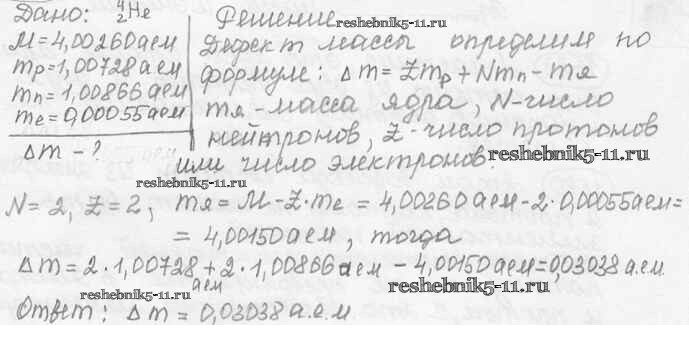 Дано: ⁴₂He
M = 4,00260 аем
mp = 1,00728 аем
mn = 1,00866 аем
me = 0,00055 аем
Δm - ?
Решение
reshebnik5-11.ru
Дефект массы определим по
формуле: Δm = Zmp + Nmn - mя
mя - масса ядра, N - число
нейтронов, Z - число протонов
или число электронов.
reshebnik5-11.ru
reshebnik5-11.ru
N = 2, Z = 2; mя = M - Z·me = 4,00260 аем - 2·0,00055 аем =
= 4,00150 аем, тогда
Δm = 2·1,00728 + 2·1,00866 аем - 4,00150 аем = 0,03038 а.ем.
аем
reshebnik5-11.ru
reshebnik5-11.ru
Ответ: Δm = 0,03038 а.е.м.
reshebnik5-11.ru